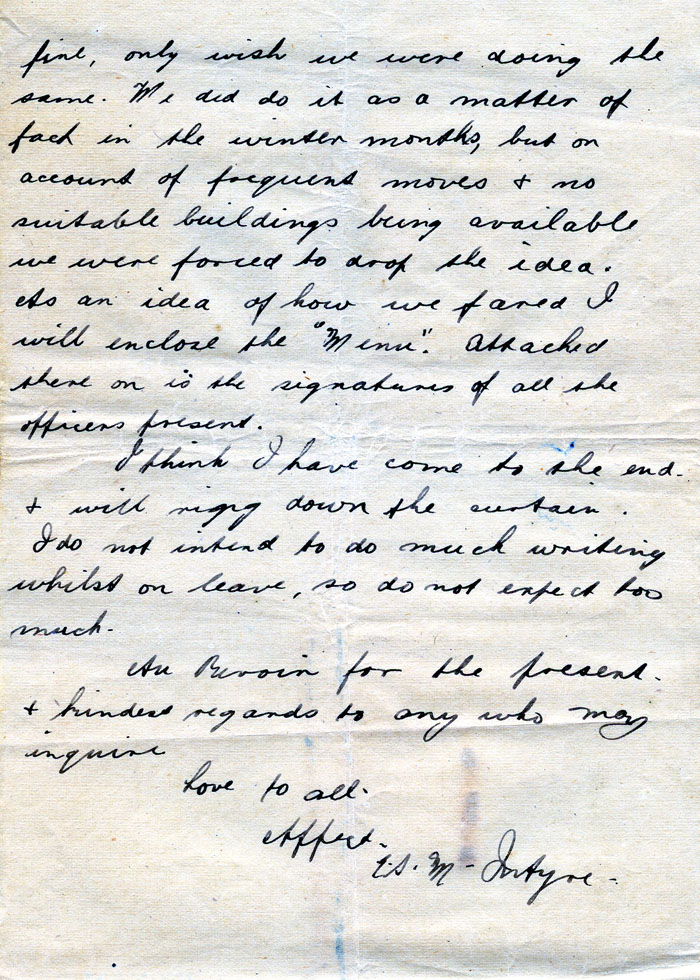 fine, only wish we were doing the
same. We did do it as a matter of
fact in the winter months, but on
account of frequent moves & no
suitable buildings being available
we were forced to drop the idea.
As an idea of how we fared I
will enclose the "Menu". Attached
there on is the signatures of all the
officers present.
I think I have come to the end.
& will ring down the curtain.
I do not intend to do much writing
whilst on leave, so do not expect too
much.
Au Revoir for the present.
& kindest regards to any who may
inquire
Love to all.
Affect.
E.S. Mc Intyre.